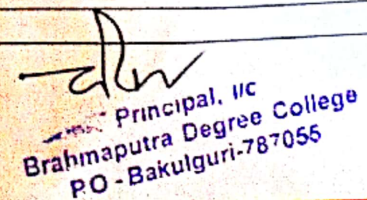 Principal, I/C
Brahmaputra Degree College
P.O - Bakulguri-787055